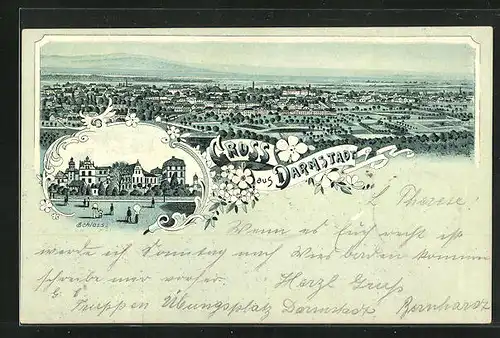 Gruss
aus Darmstadt
Schloss.
L Therese!
Wenn es Euch recht ist
werde ich Sonntag nach Wiesbaden kommen
schreibe mir vorher. Herzl Gruß
Truppen Übungsplatz Darmstadt Bernhardt